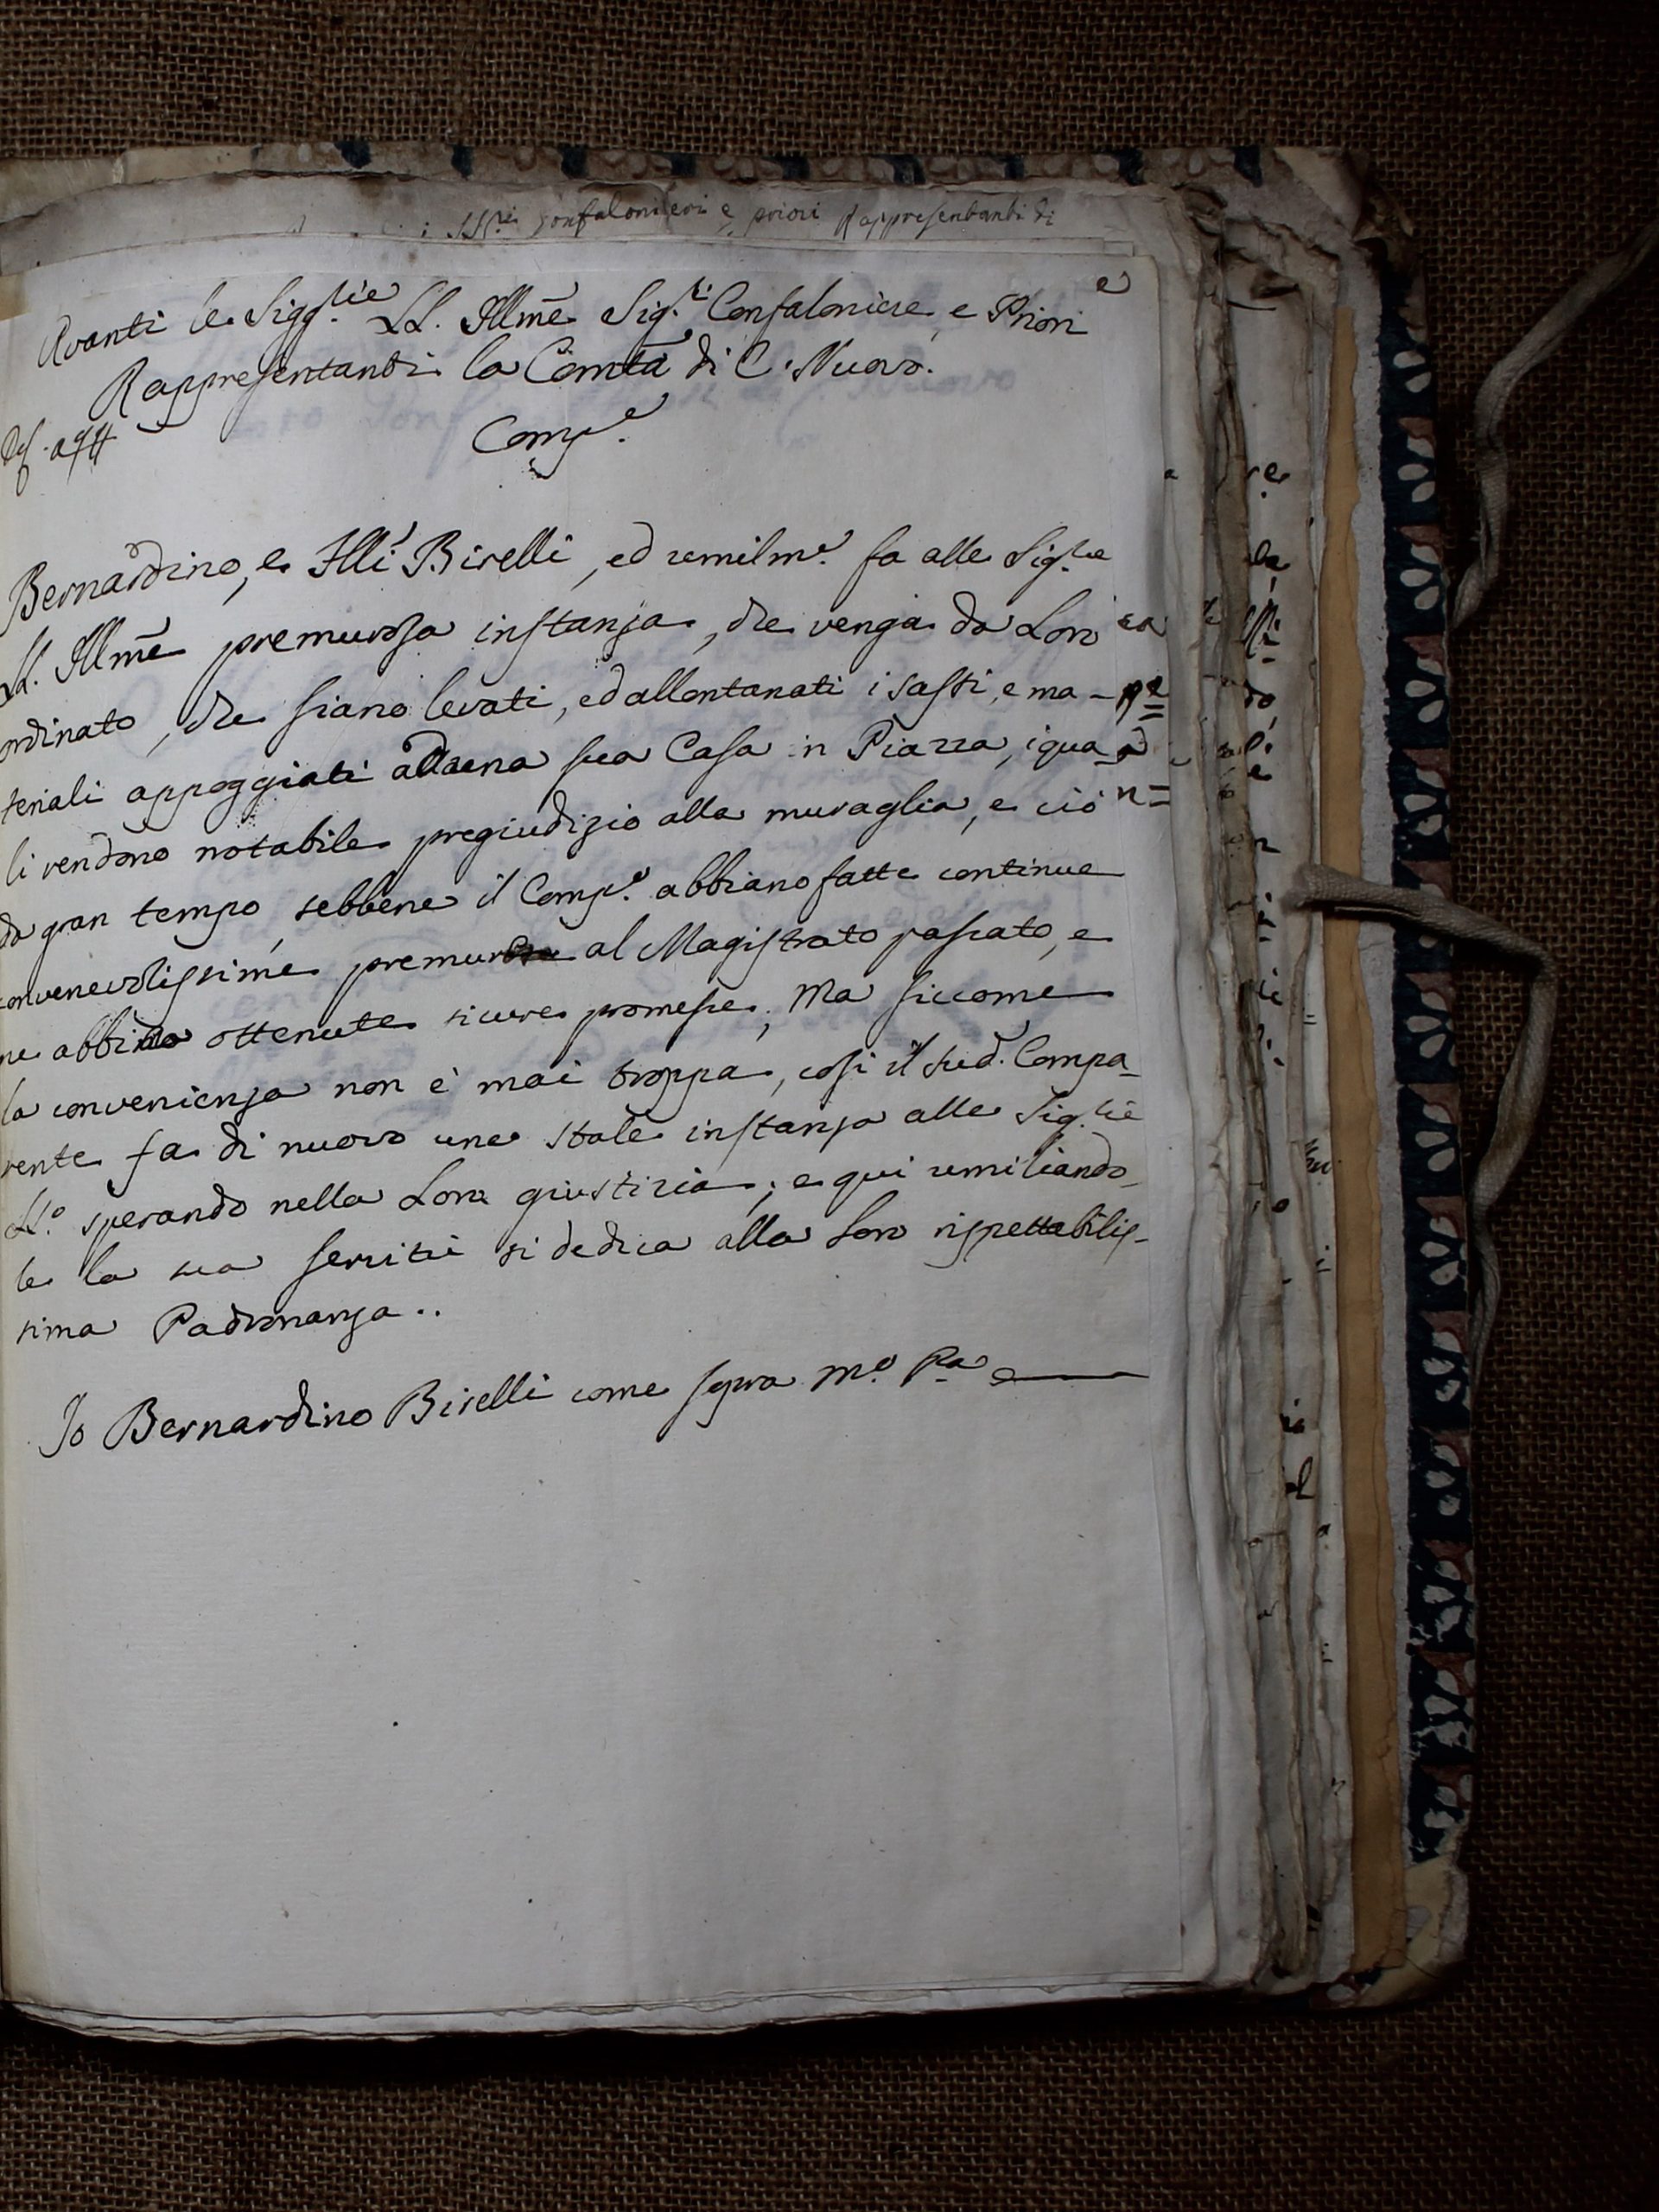 SS.ri Gonfalonieri e priori Rappresentanti di
Avanti le Sigg.rie LL. Illme Sig.ri Confaloniere, e Priori
Rappresentanti la Comtà di C. Nuovo.
Comp.e
Bernardino, e Flli Birelli, ed umilm.e fa alle Sig.rie
LL. Illme premurosa instanza, che venga da Loro
ordinato, che siano levati, ed allontanati i sassi, e ma-
teriali appoggiati ad una sua Casa in Piazza, i qua-
li rendono notabile pregiudizio alla muraglia, e ciò
da gran tempo, sebbene il Comp.e abbiano fatte continue
convenevolissime premure al Magistrato passato, e
ne abbia ottenute sicure promesse; Ma siccome
la convenienza non è mai troppa, così il sud. Compa-
rente fa di nuovo una stale instanza alle Sig.rie
LL. sperando nella Loro giustizia; e qui umiliando-
le la sua servitù si dedica alla Loro rispettabilis-
sima Padronanza..
Io Bernardino Birelli come sopra m.o p.a